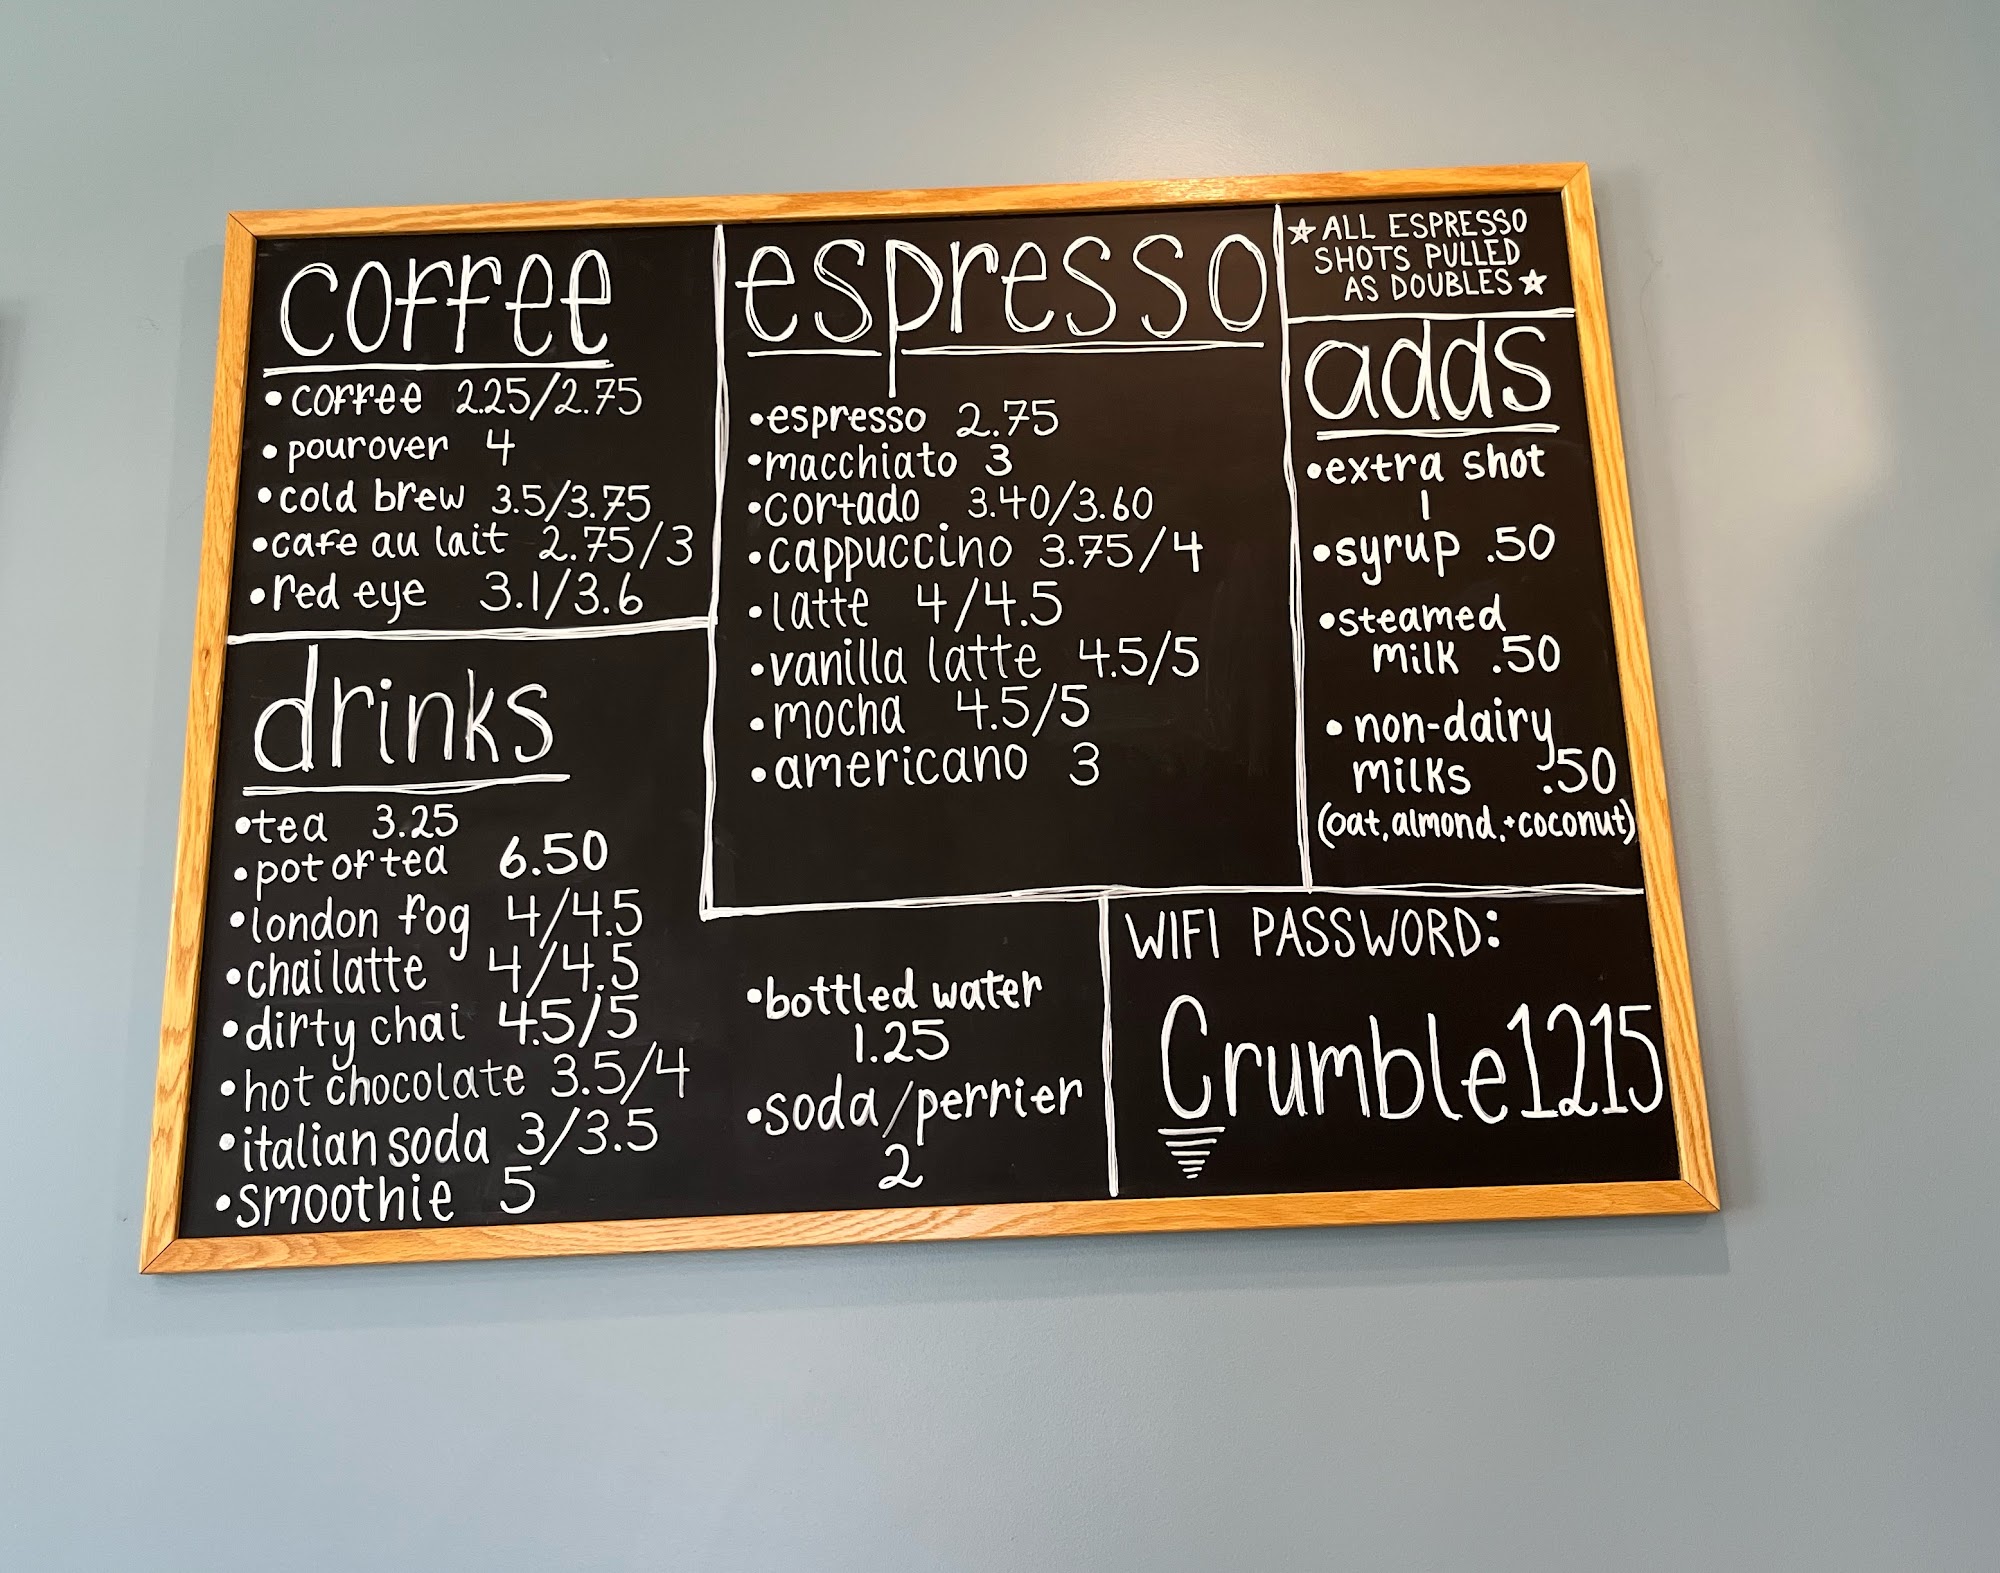 coffee
• coffee 2.25/2.75
• pourover 4
• cold brew 3.5/3.75
• cafe au lait 2.75/3
• red eye 3.1/3.6
drinks
• tea 3.25
• pot of tea 6.50
• london fog 4/4.5
• chai latte 4/4.5
• dirty chai 4.5/5
• hot chocolate 3.5/4
• italian soda 3/3.5
• smoothie 5
espresso
• espresso 2.75
• macchiato 3
• cortado 3.40/3.60
• cappuccino 3.75/4
• latte 4/4.5
• vanilla latte 4.5/5
• mocha 4.5/5
• americano 3
• bottled water
1.25
• soda/perrier
2
☆ ALL ESPRESSO
SHOTS PULLED
AS DOUBLES ☆
adds
• extra shot
1
• syrup .50
• steamed
milk .50
• non-dairy
milks .50
(oat, almond, + coconut)
WIFI PASSWORD:
Crumble1215